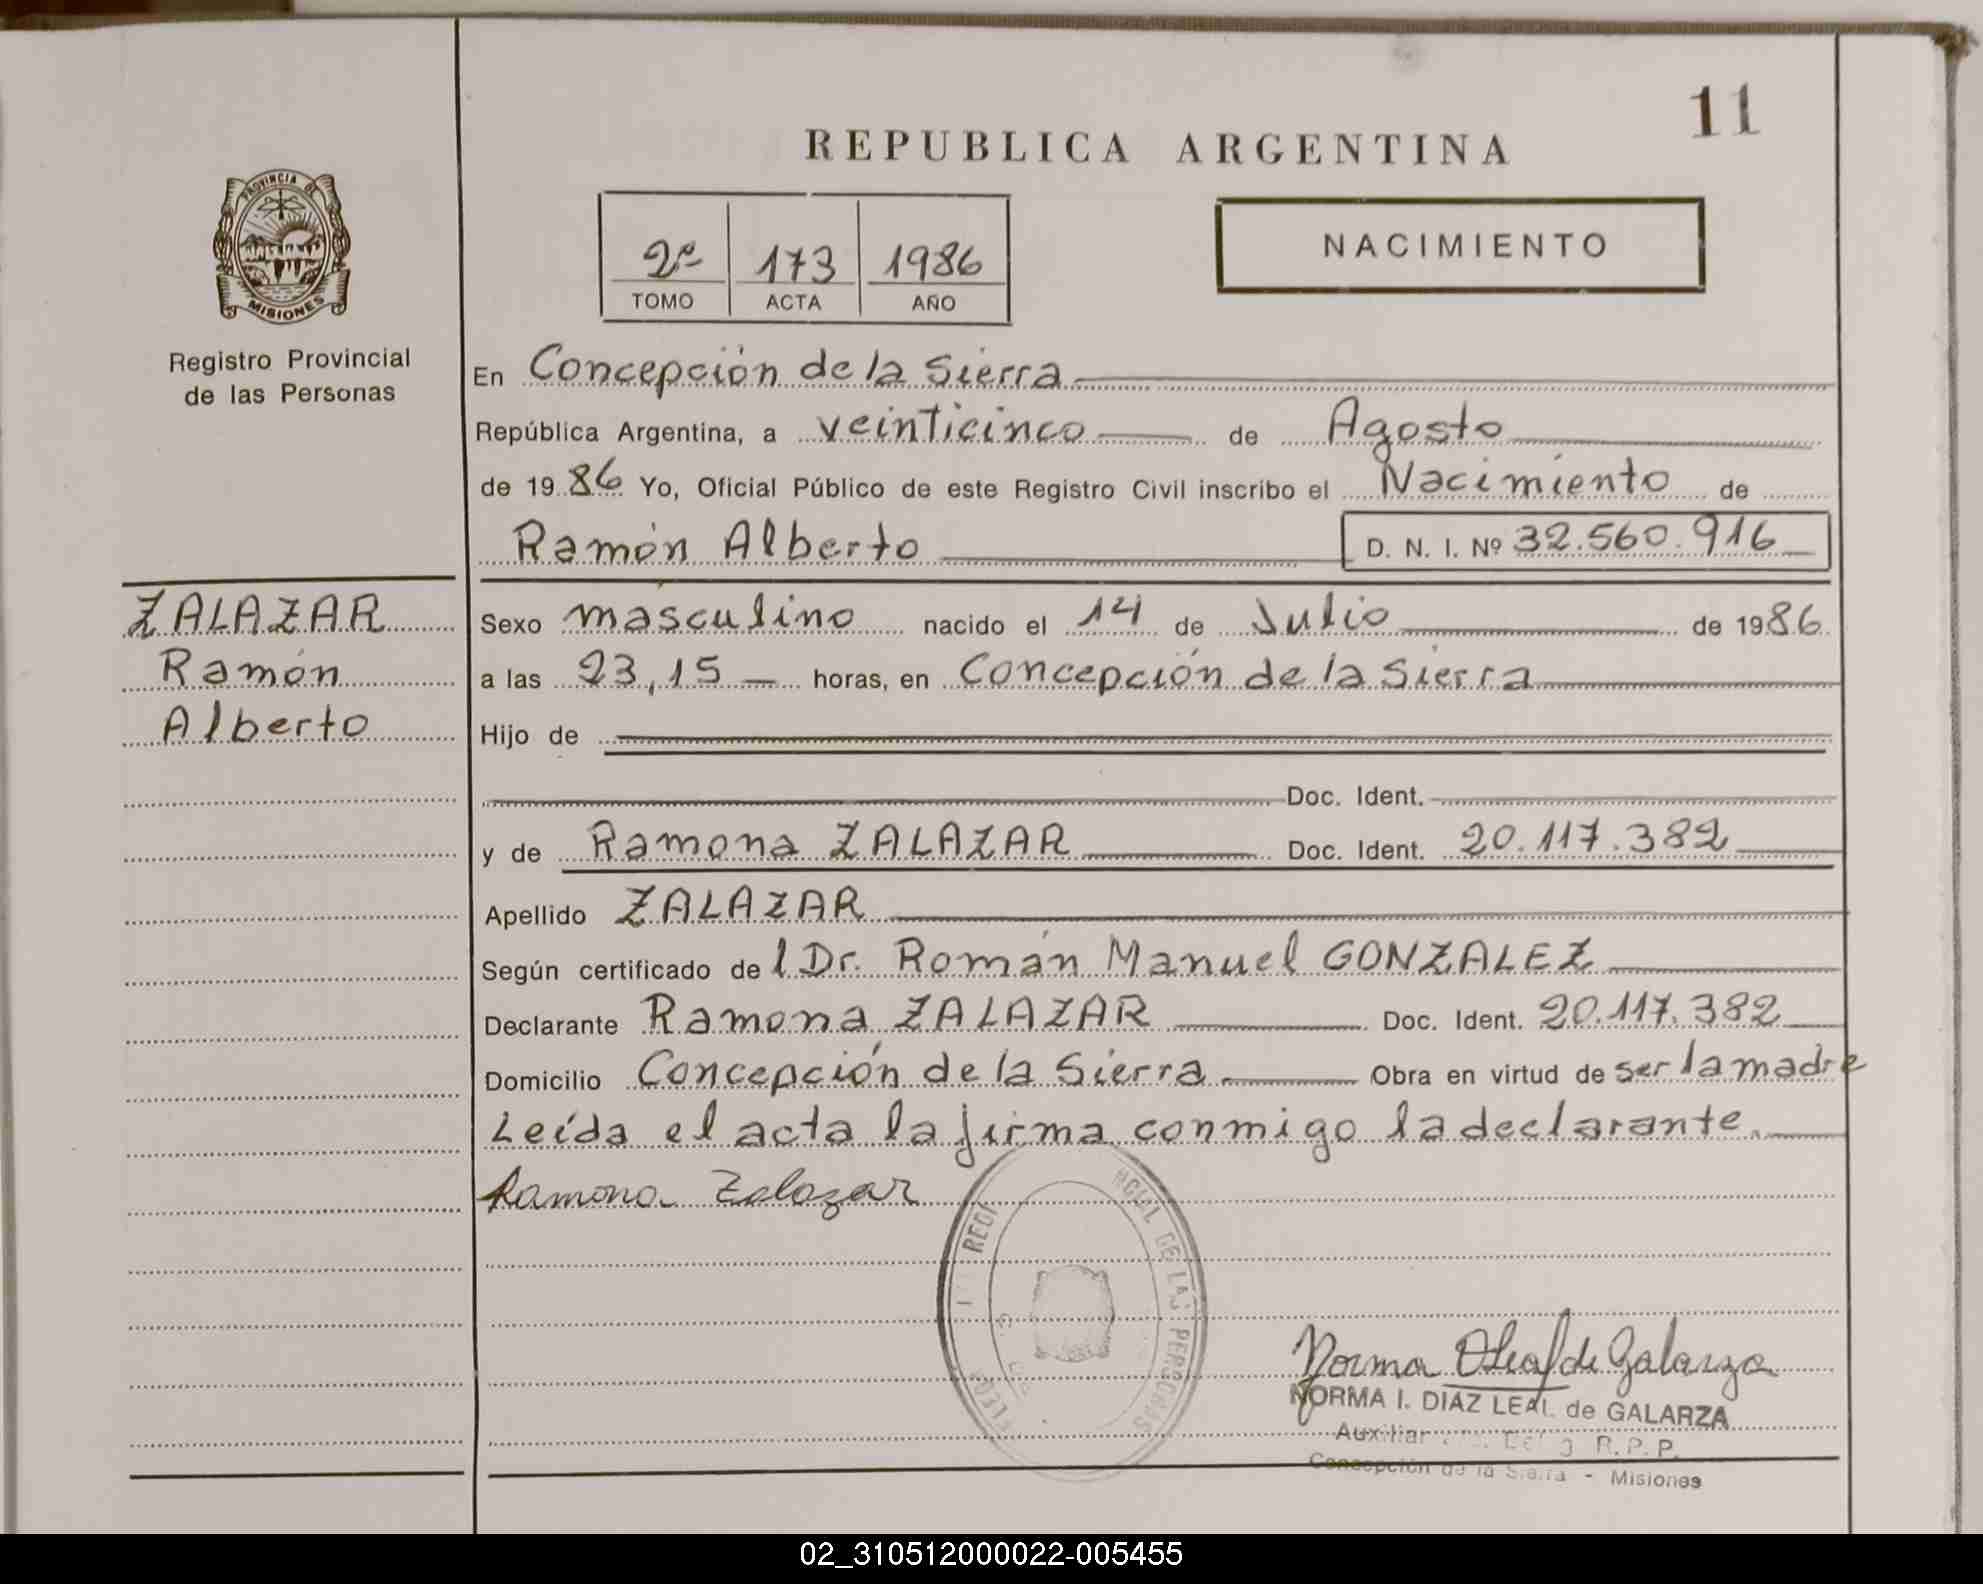 11
REPUBLICA ARGENTINA
PROVINCIA DE
MISIONES
Registro Provincial
de las Personas
2º 173 1986
TOMO ACTA AÑO
NACIMIENTO
En Concepción de la Sierra
República Argentina, a veinticinco de Agosto
de 1986 Yo, Oficial Público de este Registro Civil inscribo el Nacimiento de
Ramón Alberto D. N. I. Nº 32.560.916
ZALAZAR
Ramón
Alberto
Sexo masculino nacido el 14 de Julio de 1986
a las 23,15 horas, en Concepción de la Sierra
Hijo de
Doc. Ident.
y de Ramona ZALAZAR Doc. Ident. 20.117.382
Apellido ZALAZAR
Según certificado del Dr. Román Manuel GONZALEZ
Declarante Ramona ZALAZAR Doc. Ident. 20.117.382
Domicilio Concepción de la Sierra Obra en virtud de ser la madre
Leída el acta la firma conmigo la declarante.
Ramona Zalazar
DE LAS PERSONAS
Norma DLeal de Galarza
NORMA I. DIAZ LEAL de GALARZA
Auxiliar R. P. P.
Concepción de la Sierra - Misiones
02_310512000022-005455